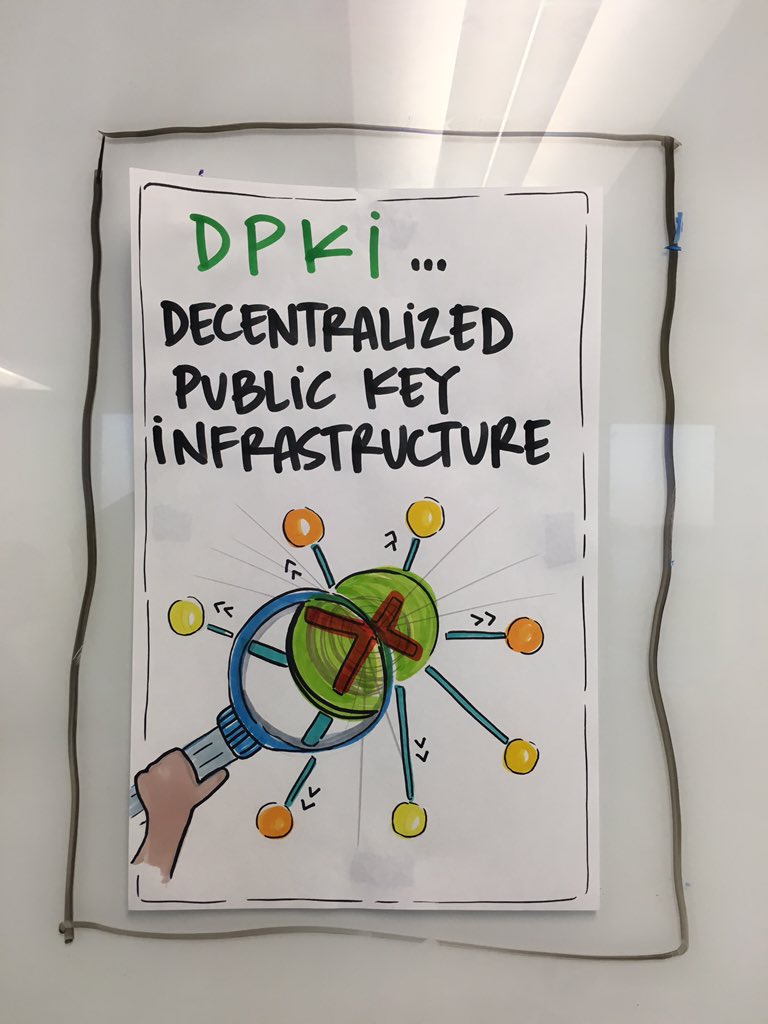 DPKi ...
DECENTRALiZED
PUBLiC KEY
iNFRASTRUCTURE